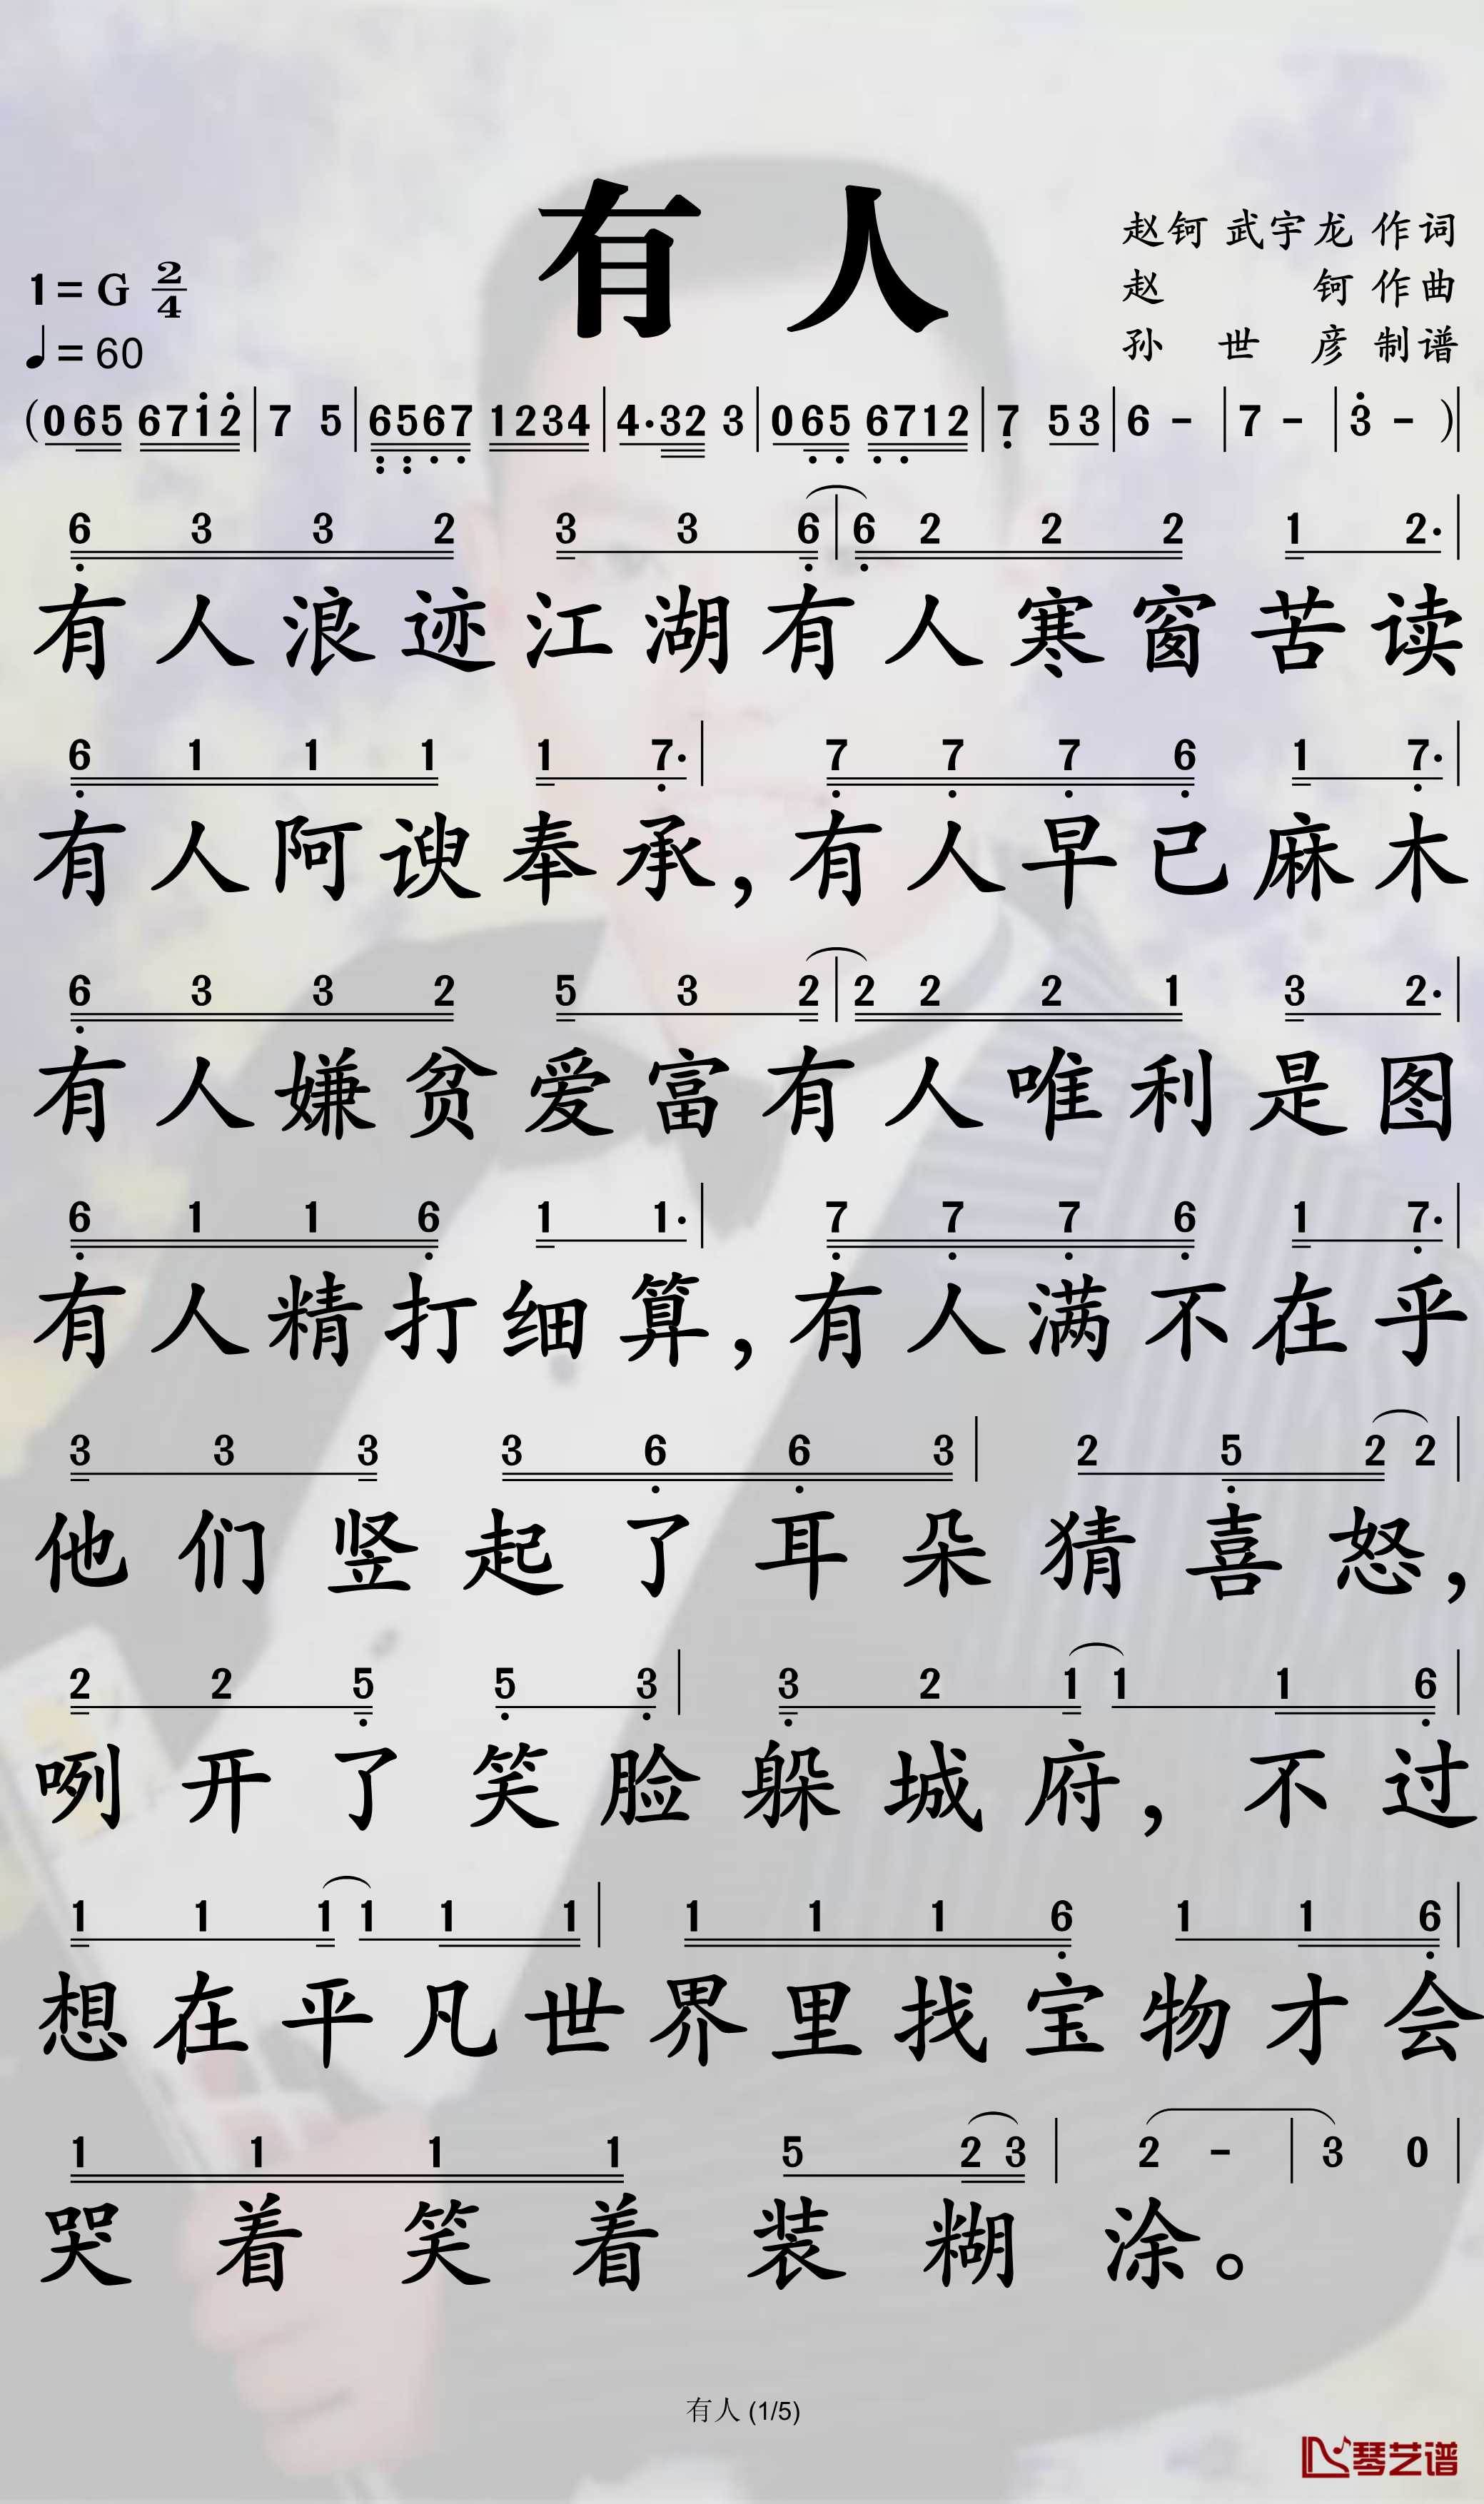 有人
赵钶 武宇龙 作词
赵钶 作曲
孙世彦 制谱
1=G 2/4
♩=60
(065 6712|7 5|6567 1234|4·32 3|065 6712|7 53|6 -|7 -|3 -)|
6 3 3 2 3 3 6|6 2 2 2 1 2·|
有人浪迹江湖有人寒窗苦读
6 1 1 1 1 7·|7 7 7 6 1 7·|
有人阿谀奉承,有人早已麻木
6 3 3 2 5 3 2|2 2 2 1 3 2·|
有人嫌贫爱富有人唯利是图
6 1 1 6 1 1·|7 7 7 6 1 7·|
有人精打细算,有人满不在乎
3 3 3 3 6 6 3|2 5 2 2|
他们竖起了耳朵猜喜怒,
2 2 5 5 3|3 2 1 1 1 6|
咧开了笑脸躲城府,不过
1 1 1 1 1 1|1 1 1 6 1 1 6|
想在平凡世界里找宝物才会
1 1 1 1 5 2 3|2 -|3 0|
哭着笑着装糊涂。
有人 (1/5)
琴艺谱